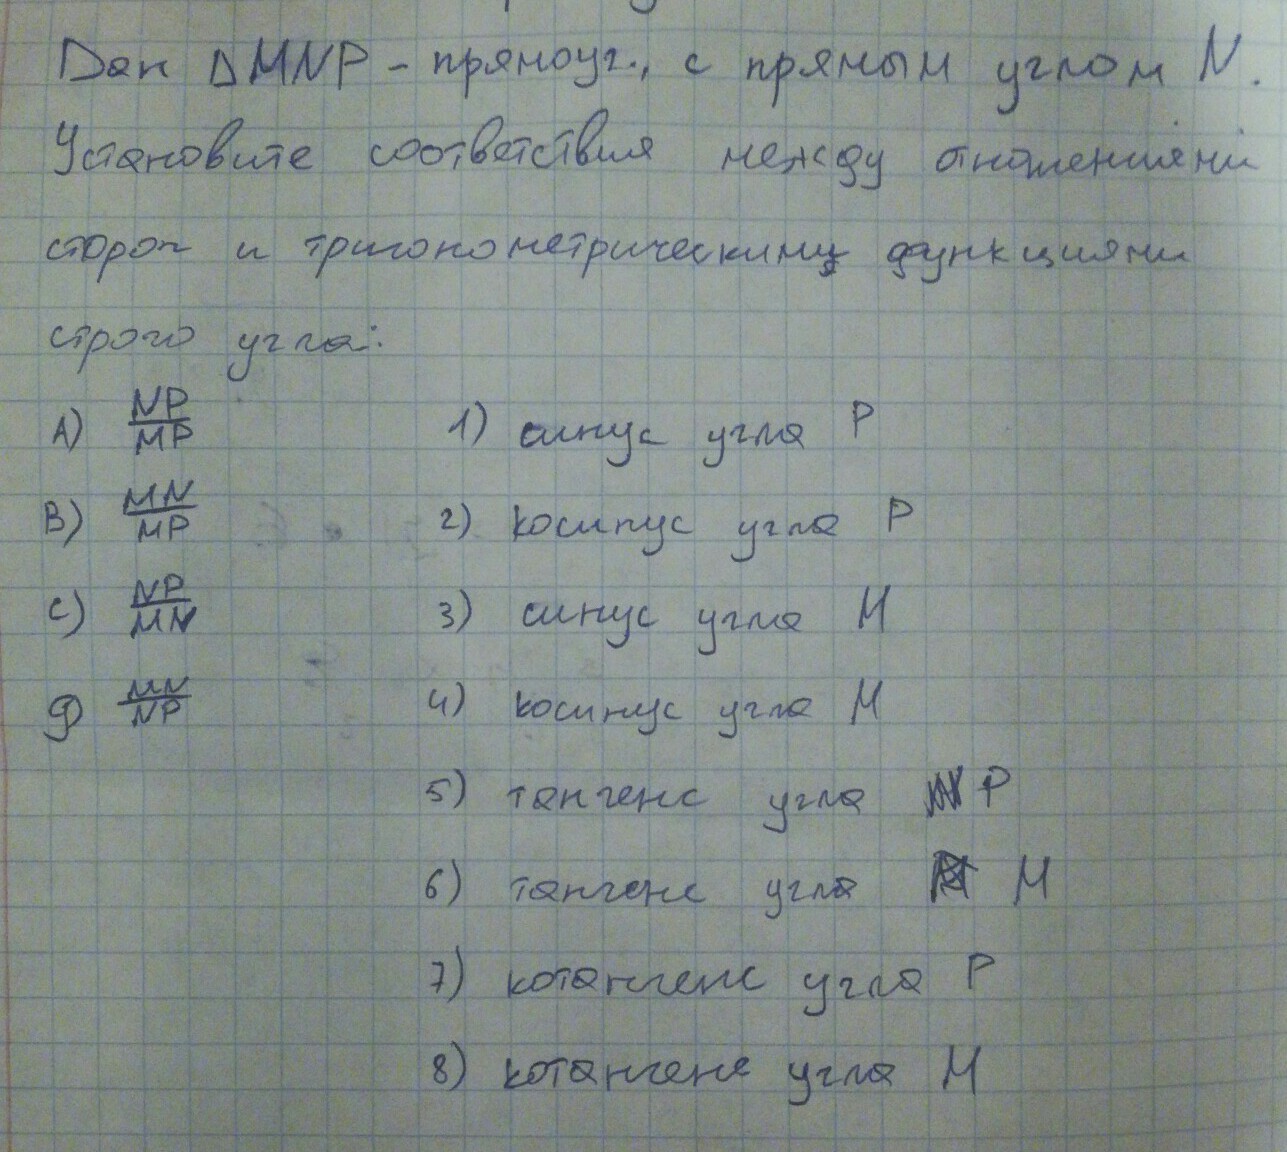 Дан ΔMNP - прямоуг., с прямым углом N.
Установите соответствия между отношениями
сторон и тригонометрическими функциями
строго угла:
A) NP/MP 1) синус угла P
B) MN/MP 2) косинус угла P
C) NP/MN 3) синус угла M
D) MN/NP 4) косинус угла M
5) тангенс угла P
6) тангенс угла M
7) котангенс угла P
8) котангенс угла M